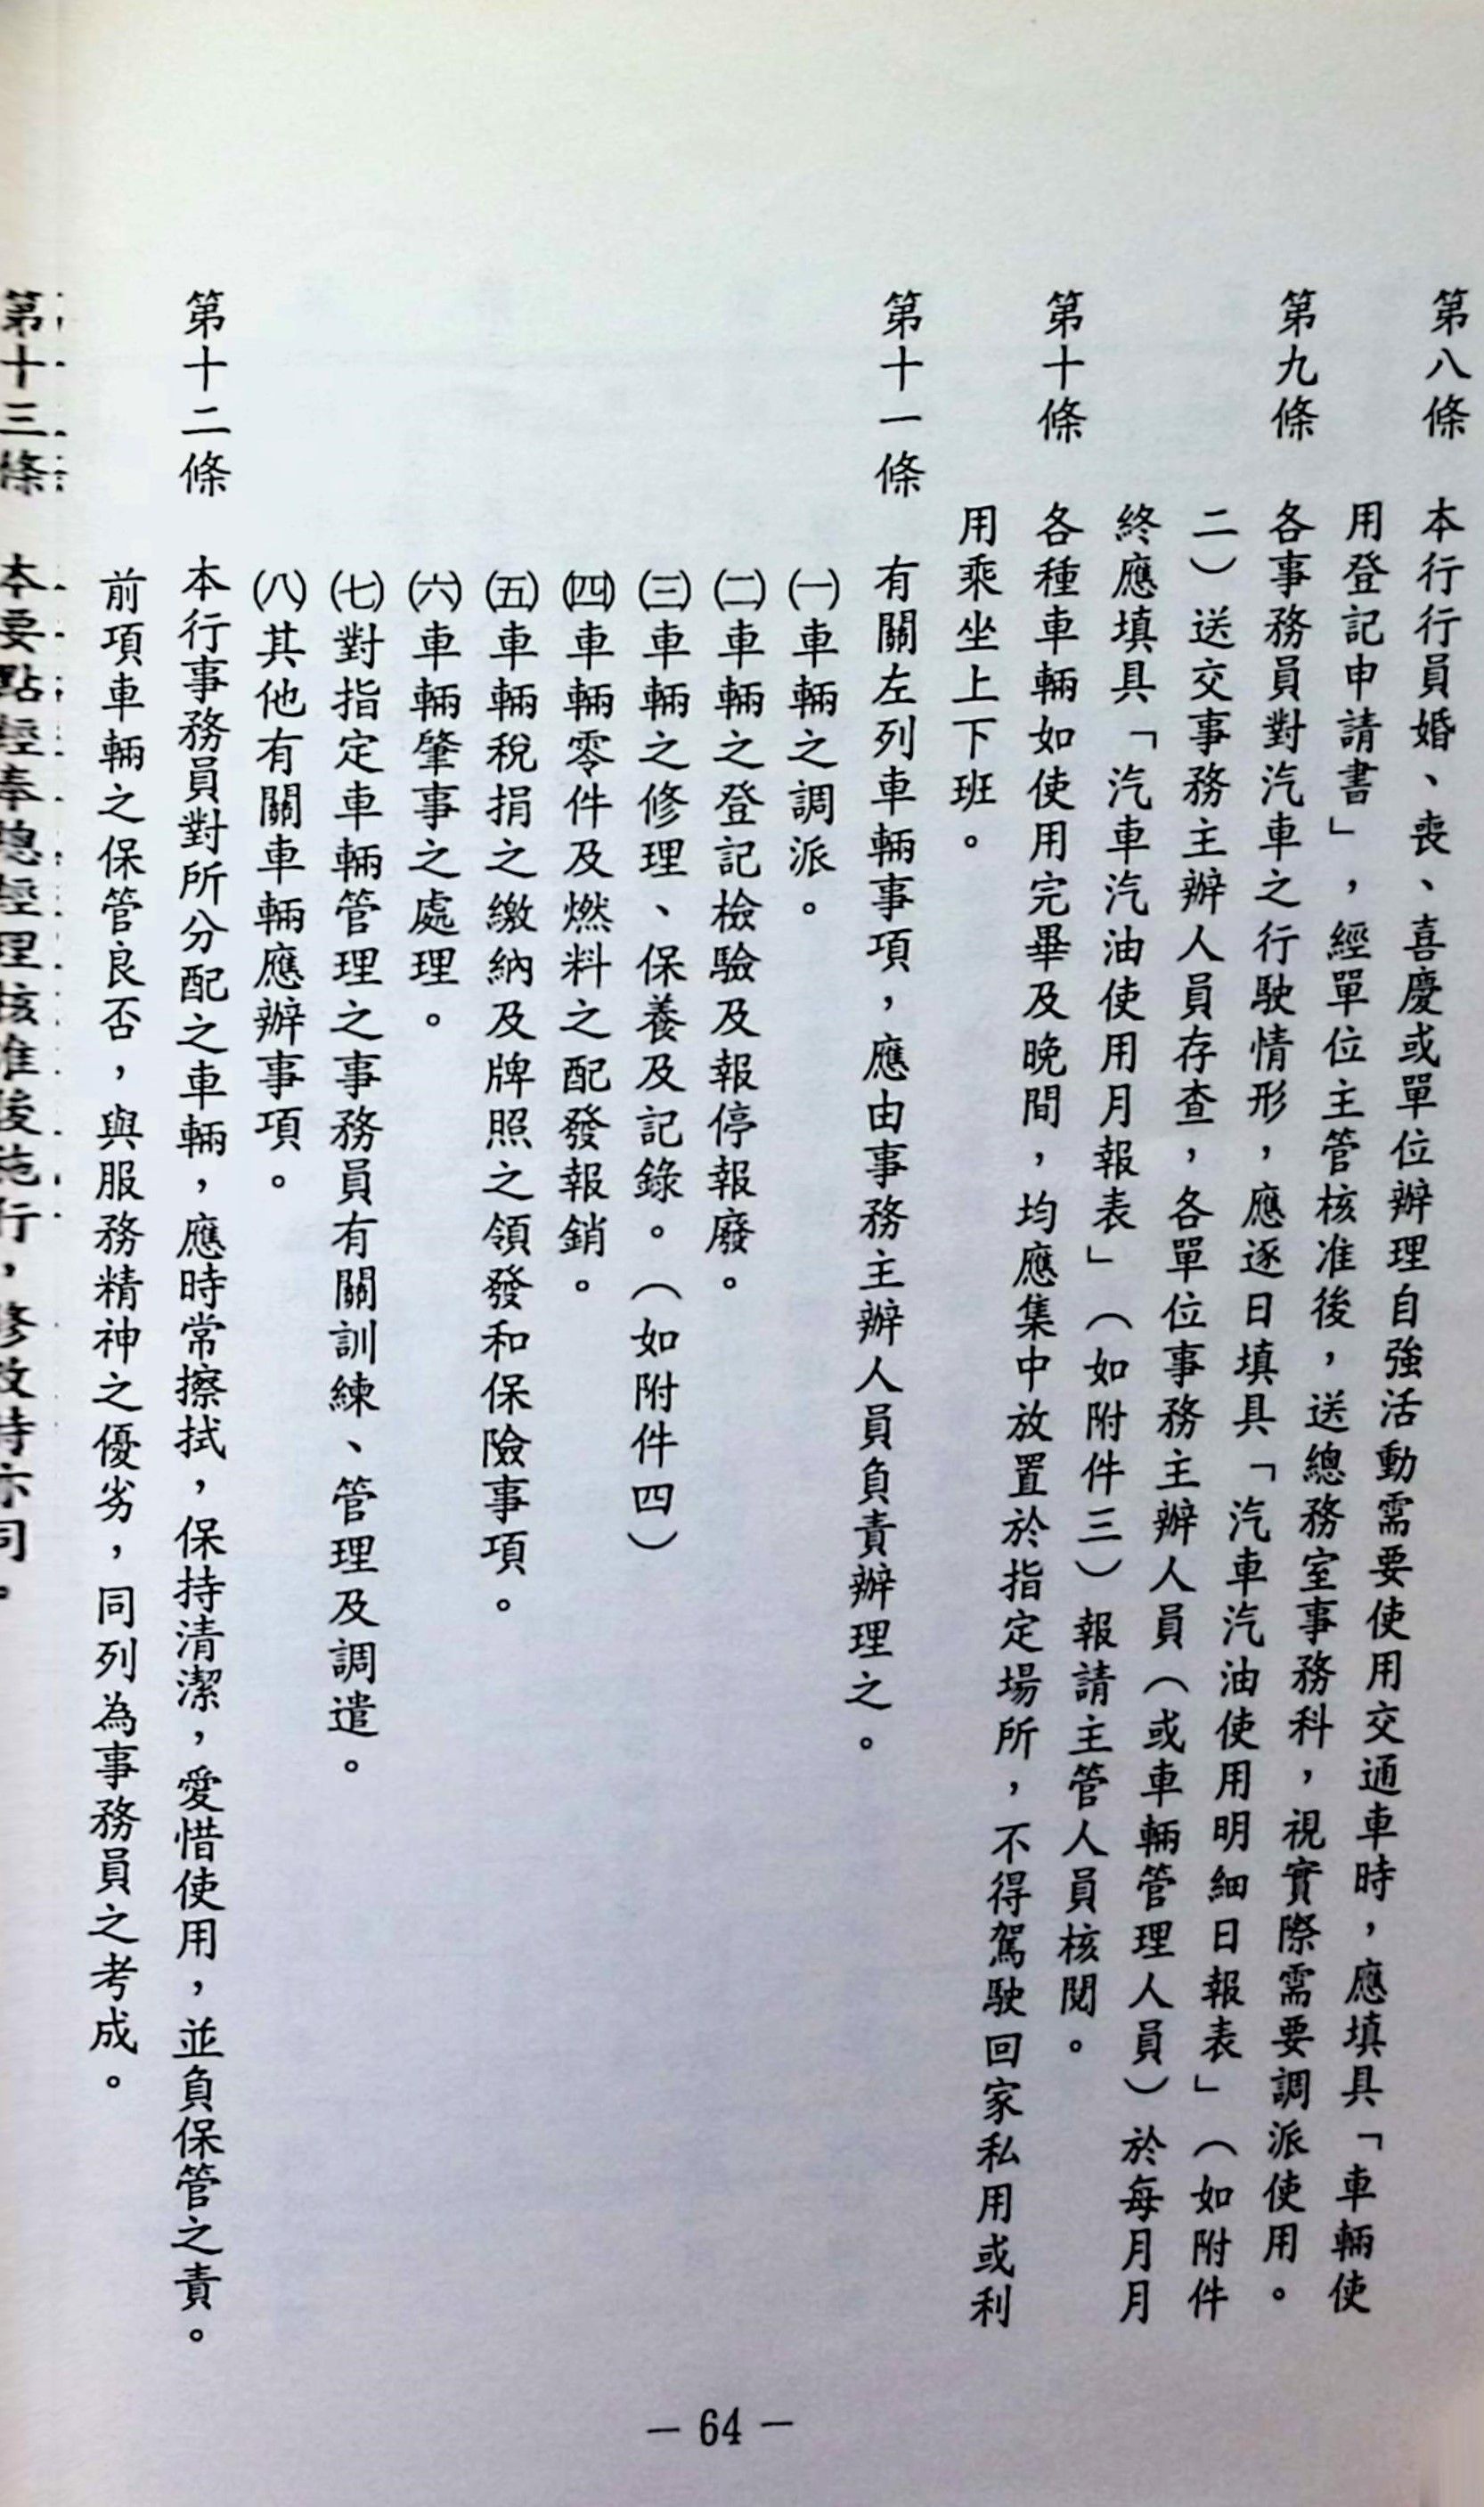 第八條　本行行員婚、喪、喜慶或單位辦理自強活動需要使用交通車時，應填具「車輛使
用登記申請書」，經單位主管核准後，送總務室事務科，視實際需要調派使用。
第九條　各事務員對汽車之行駛情形，應逐日填具「汽車汽油使用明細日報表」（如附件
二）送交事務主辦人員存查，各單位事務主辦人員（或車輛管理人員）於每月月
終應填具「汽車汽油使用月報表」（如附件三）報請主管人員核閱。
第十條　各種車輛如使用完畢及晚間，均應集中放置於指定場所，不得駕駛回家私用或利
用乘坐上下班。
第十一條　有關左列車輛事項，應由事務主辦人員負責辦理之。
㈠車輛之調派。
㈡車輛之登記檢驗及報停報廢。
㈢車輛之修理、保養及記錄。（如附件四）
㈣車輛零件及燃料之配發報銷。
㈤車輛稅捐之繳納及牌照之領發和保險事項。
㈥車輛肇事之處理。
㈦對指定車輛管理之事務員有關訓練、管理及調遣。
㈧其他有關車輛應辦事項。
第十二條　本行事務員對所分配之車輛，應時常擦拭，保持清潔，愛惜使用，並負保管之責。
前項車輛之保管良否，與服務精神之優劣，同列為事務員之考成。
第十三條　本要點經奉總經理核准後施行，修改時亦同。
－64－